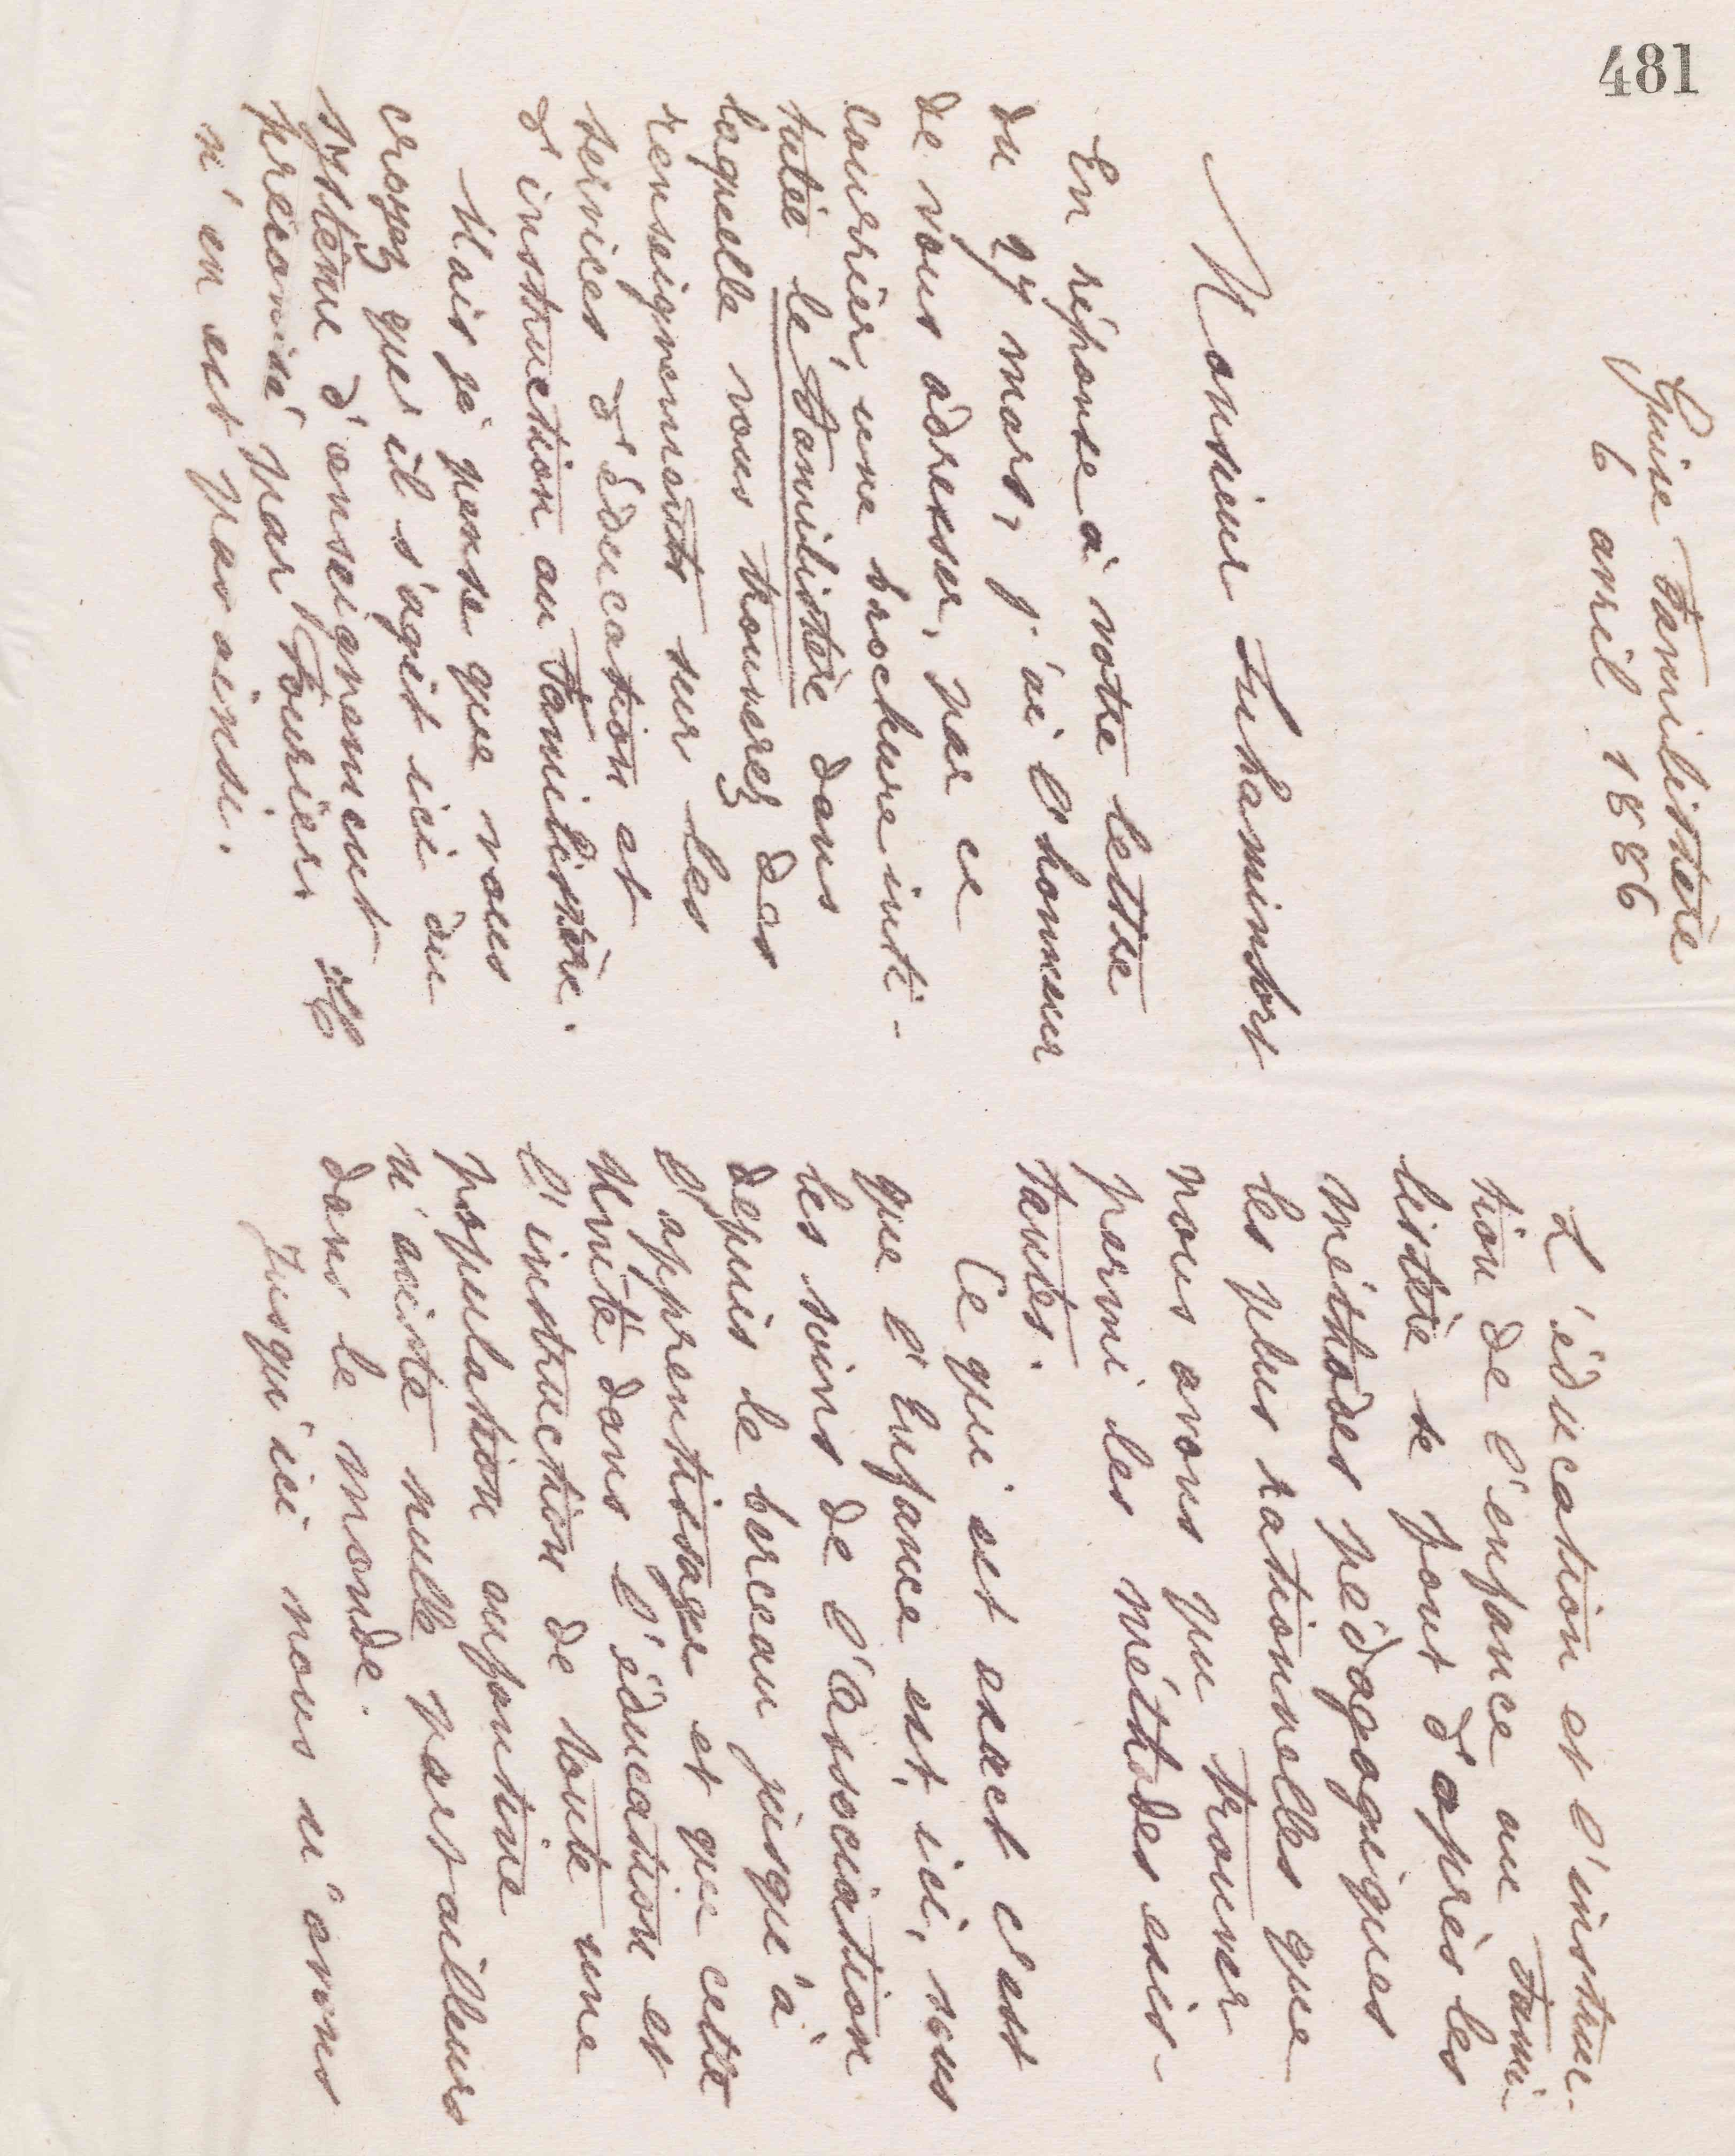 481
Guise Familistère
6 avril 1886
Monsieur Duhaminbort
En réponse à votre lettre
du 29 mars, j'ai l'honneur
de vous adresser, par ce
courrier, une brochure inti-
tulée le Familistère dans
laquelle vous trouverez des
renseignements sur les
services d'éducation et
d'instruction au Familistère.
Mais je pense que vous
croyez qu'il s'agit ici du
système d'enseignement
préconisé par Fourier. Il
n'en est pas ainsi.
L'éducation et l'instruc-
tion de l'enfance au Fami-
listère se font d'après les
méthodes pédagogiques
les plus rationnelles que
nous avons pu trouver
parmi les méthodes exis-
tantes.
Ce qui est exact c'est
que l'Enfance est, ici, sous
les soins de l'Association
depuis le berceau jusqu'à
l'apprentissage et que cette
Unité dans l'éducation et
l'instruction de toute une
population enfantine
n'existe nulle part ailleurs
dans le monde.
Jusqu'ici nous n'avons